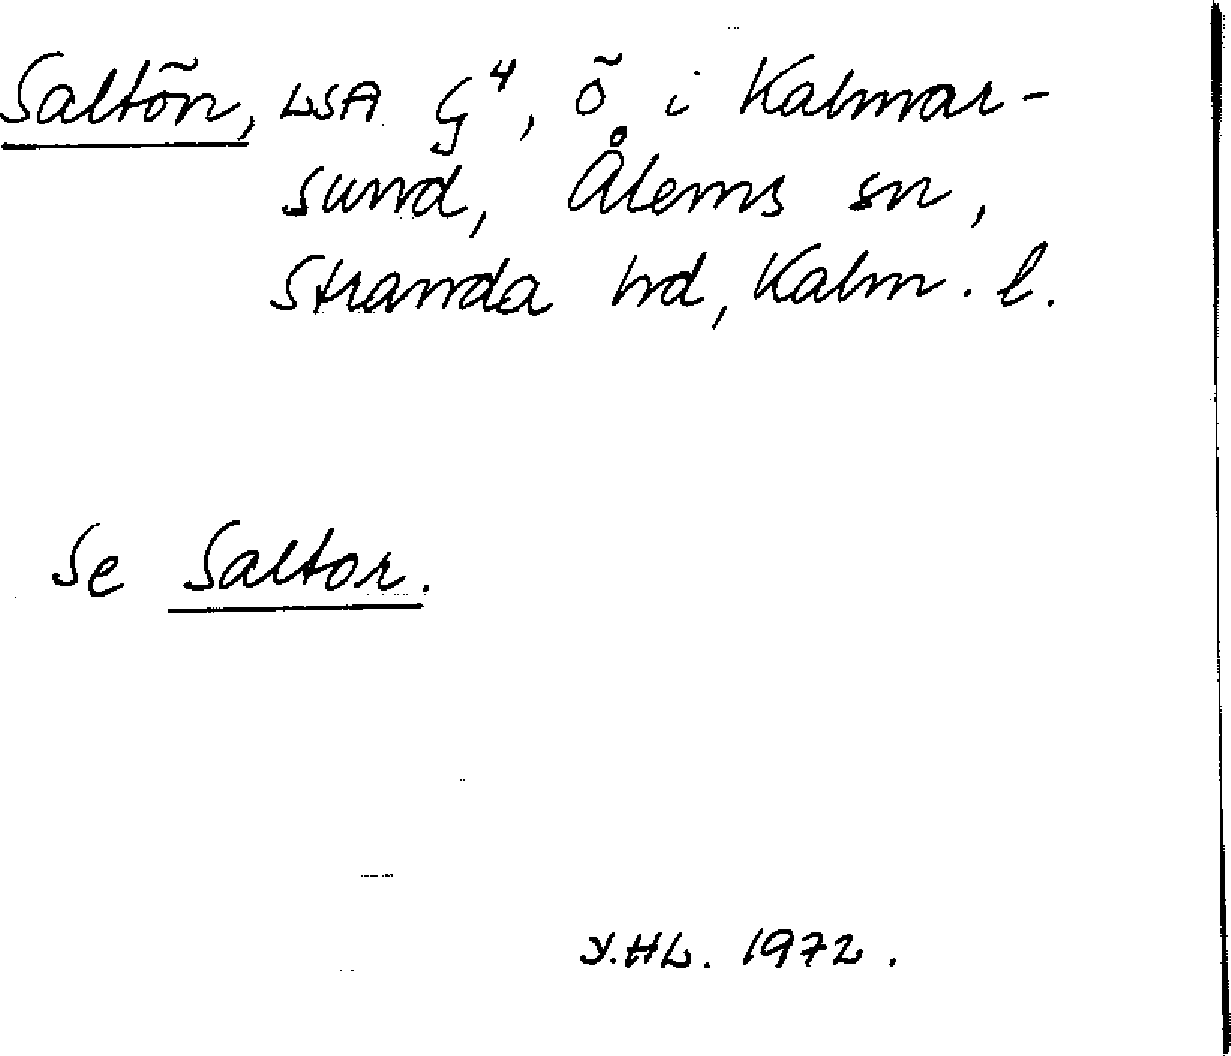 Saltön, LSA G⁴, ö i Kalmar-
sund, Ålems sn,
Stranda hd, Kalm. l.
Se Saltor.
Y.HL. 1972.